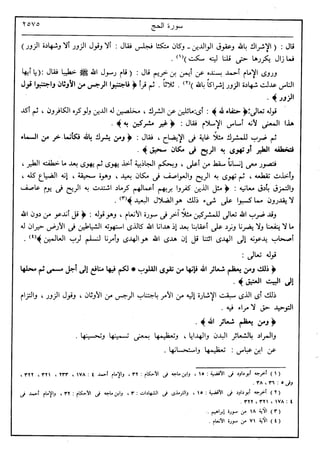 سورة الحج ٢٥٧٥
قال : ( الإشراك بالله وعقوق الوالدين ـ وكان متكئا فجلس فقال : ألا وقول الزور ألا وشهادة الزور )
فما زال يكررها حتى قلنا ليته سكت )(١) .
وروى الإمام أحمد بسنده عن أيمن بن خريم قال : ( قام رسول الله ﷺ خطيبا فقال : ( يا أيها
الناس عدلت شهادة الزور إشراكاً بالله )(٢) . ثلاثاً . ثم قرأ ﴿ فاجتنبوا الرجس من الأوثان واجتنبوا قول
الزور ﴾ .
قوله تعالى : ﴿ حنفاء لله ﴾ : أي: مائلين عن الشرك ، مخلصين له الدين ولو كره الكافرون ، ثم أكد
هذا المعنى لأنه أساس الإسلام فقال : ﴿ غير مشركين به ﴾ .
ثم ضرب للمشرك مثلاً غاية في الإيضاح ، فقال : ﴿ ومن يشرك بالله فكأنما خر من السماء
فتخطفه الطير أو تهوي به الريح في مكان سحيق ﴾ .
فتصور معي إنساناً سقط من أعلى ، وبحكم الجاذبية أخذ يهوي ثم يهوي بعد ما خطفته الطير ،
وأخذت تقطعه ، ثم تهوي به الريح والعواصف في مكان بعيد ، وهوة سحيقة ، إنه الضياع كله ،
والتمزق بأدق معانيه : ﴿ مثل الذين كفروا بربهم أعمالهم كرماد اشتدت به الريح في يوم عاصف
لا يقدرون مما كسبوا على شيء ذلك هو الضلال البعيد ﴾(٣) .
وقد ضرب الله تعالى للمشركين مثلاً آخر في سورة الأنعام ، وهو قوله : ﴿ قل أندعو من دون الله
ما لا ينفعنا ولا يضرنا ونرد على أعقابنا بعد إذ هدانا الله كالذي استهوته الشياطين في الأرض حيران له
أصحاب يدعونه إلى الهدى ائتنا قل إن هدى الله هو الهدى وأمرنا لنسلم لرب العالمين ﴾(٤) .
قوله تعالى :
﴿ ذلك ومن يعظم شعائر الله فإنها من تقوى القلوب * لكم فيها منافع إلى أجل مسمى ثم محلها
إلى البيت العتيق ﴾ .
ذلك أي الذي سبقت الإشارة إليه من الأمر باجتناب الرجس من الأوثان ، وقول الزور ، والتزام
التوحيد حق لا مراء فيه .
﴿ ومن يعظم شعائر الله ﴾ .
والمراد بالشعائر البدن والهدايا ، وتعظيمها بمعنى تسمينها وتحسينها .
عن ابن عباس : تعظيمها واستحسانها .
( ١ ) أخرجه أبو داود في الأقضية : ١٥ ، وابن ماجه في الأحكام : ٣٢ ، والإمام أحمد ٤ : ١٧٨ ، ٢٣٣ ، ٣٢١ ، ٣٢٢ ،
وفي ٥ : ٣٦ ، ٣٨ .
( ٢ ) أخرجه أبو داود في الأقضية : ١٥ ، والترمذي في الشهادات : ٣ ، وابن ماجه في الأحكام : ٣٢ ، والإمام أحمد في
٤ : ١٧٨ ، ٣٢١ ، ٣٢٢ .
( ٣ ) الآية ١٨ من سورة إبراهيم .
( ٤ ) الآية ٧١ من سورة الأنعام .